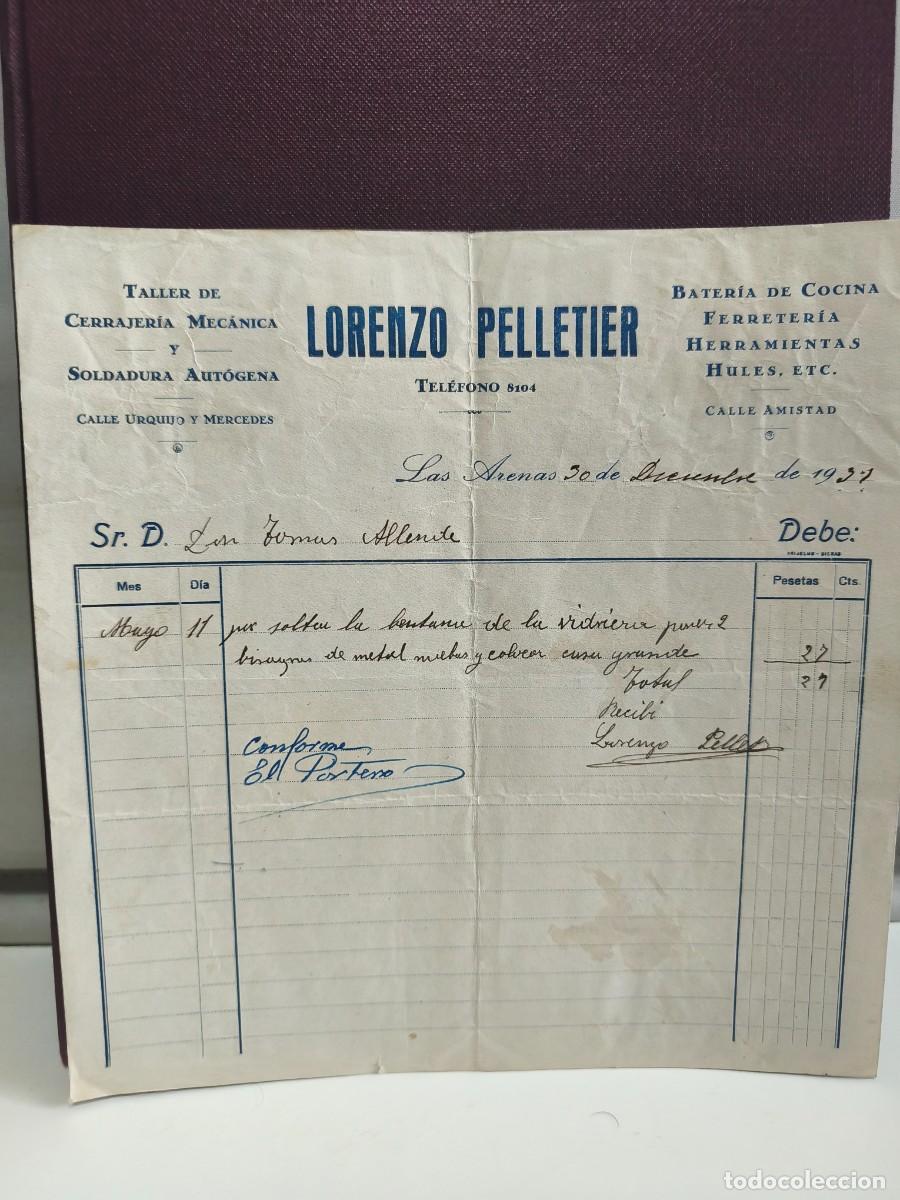 TALLER DE
CERRAJERÍA MECÁNICA
Y
SOLDADURA AUTÓGENA
CALLE URQUIJO Y MERCEDES
LORENZO PELLETIER
TELÉFONO 8104
BATERÍA DE COCINA
FERRETERÍA
HERRAMIENTAS
HULES, ETC.
CALLE AMISTAD
Las Arenas 30 de Diciembre de 1937
Sr. D. Don Tomas Allende Debe:
Mes Día Pesetas Cts.
Mayo 11 por soltar la bentana de la vidriera poner 2
bisagras de metal nuebas y colocar casa grande 27
Total 27
Recibi
Lorenzo Pelletier
Conforme
El Portero
todocoleccion